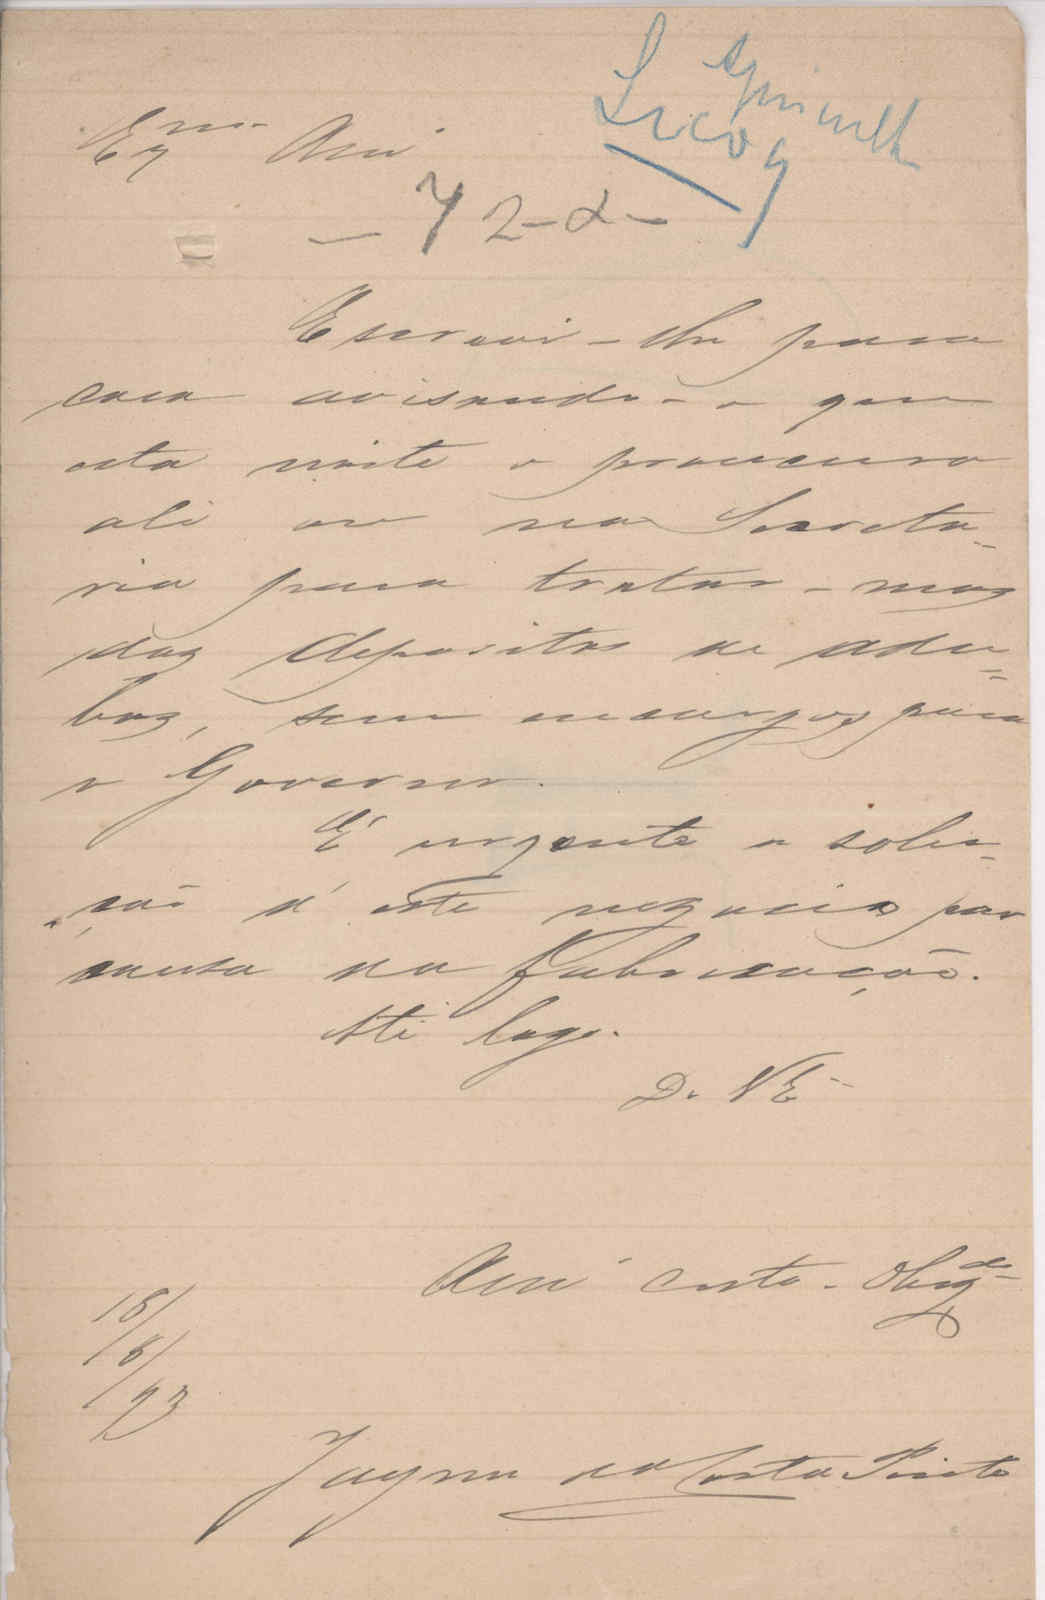 Exmo Am.
- 72-d-
Escrevi-lhe para
casa avisando-o que
esta noite o procuraro
ali ou na Secreta-
ria para tratar-mos
dos depositos de adu-
bos, sem encargos para
o Governo.
É urgente a solu-
ção d'este negocio por
causa da fabricação.
Até logo.
De V E.
Amº certo. Obrigdo
18/
/8/
/93
Jayme da Costa Pinto